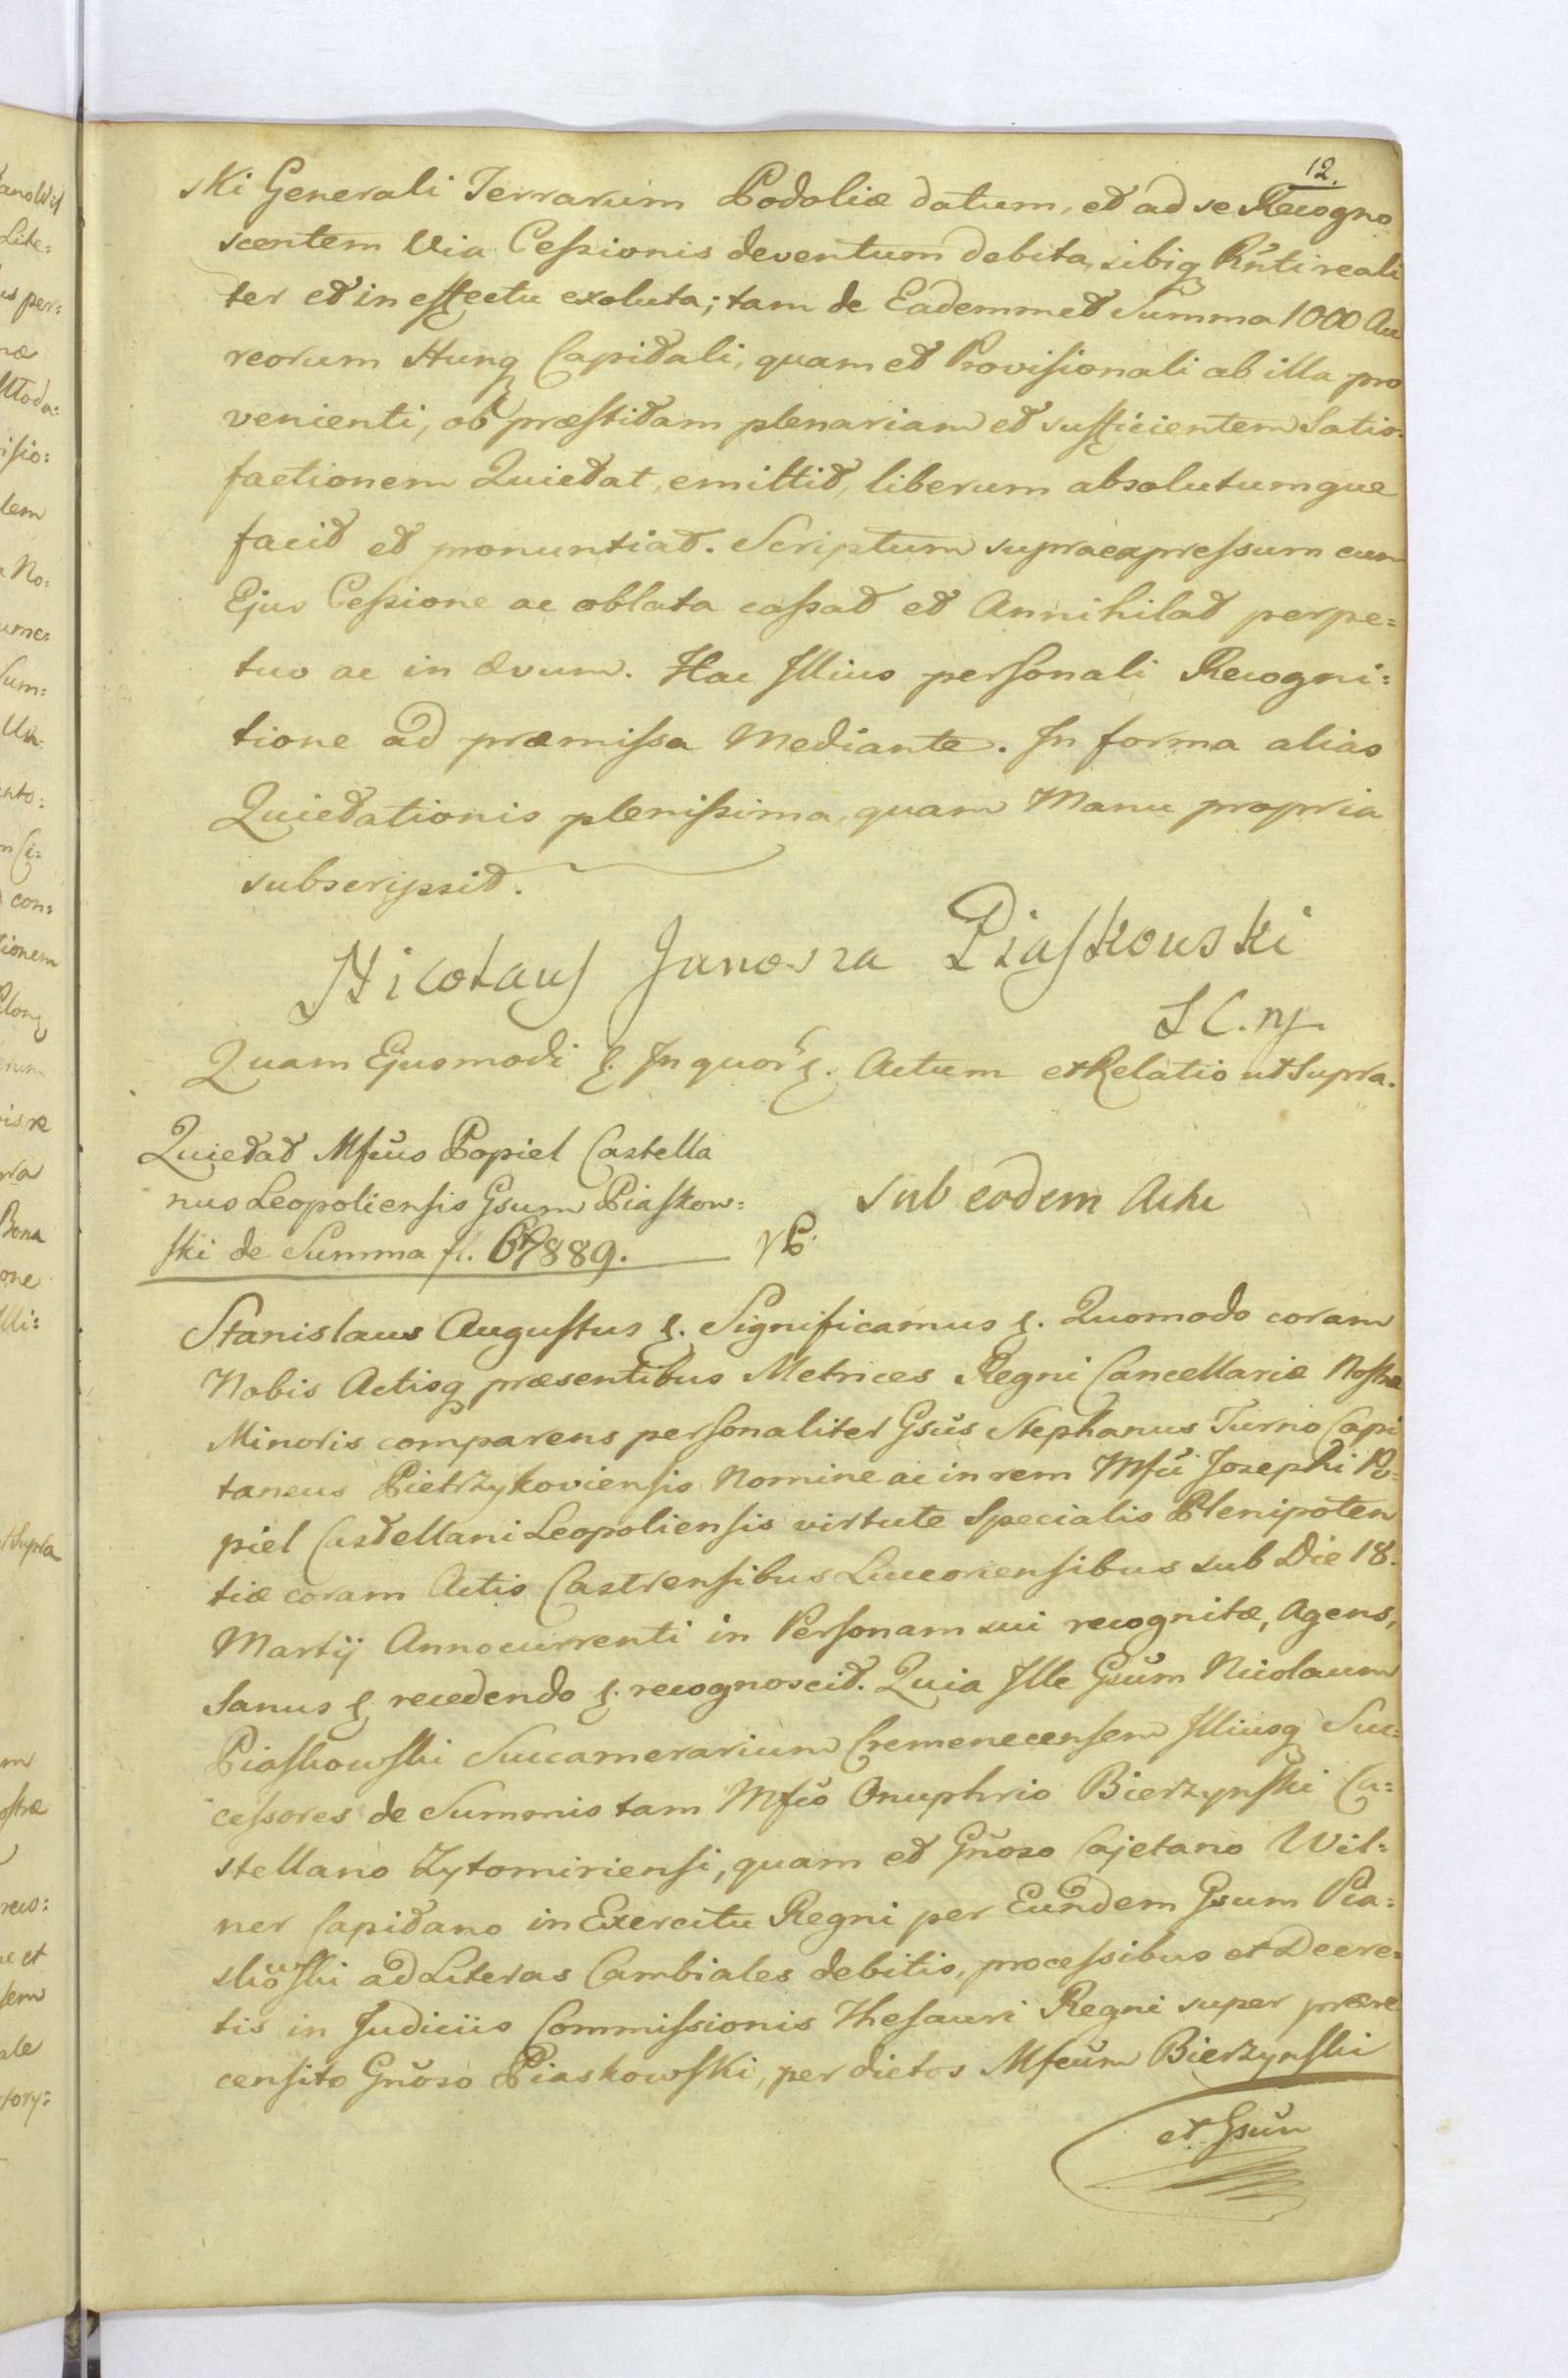 12.
ski Generali Terrarum Podoliæ datum, et ad se Recogno
scentem Via Cessionis deventum debita, sibiq Rńti reali
ter et in effectu exoluta; tam de Eademmet Summa 1000 Au
reorum Hung Capitali, quam et Provisionali ab illa pro
venienti, ob præstitam plenariam et sufficientem Satis-
factionem Quietat, emittit, liberum absolutumque
facit et pronuntiat. Scriptum supraexpressum cum
Ejus Cessione ac oblata cassat et Annihilat perpe=
tuo ac in ævum. Hac Illius personali Recogni=
tione ad præmissa Mediante. In forma alias
Quietationis plenissima, quam Manu propria
subscripsit.
Nicolaus Junosza Piaskowski
S C. mp.
Quam Ejusmodi &. In quor &. Actum et Relatio ut Supra.
Quietat Mfcus Popiel Castella
nus Leopoliensis Gsum Piaskow=
ski de Summa fl. 67889.
sub eodem Actu
Stanislaus Augustus &. Significamus &. Quomodo coram
Nobis Actisq præsentibus Metrices Regni Cancellariæ Nostræ
Minoris comparens personaliter Gsus Stephanus Turno Capi
taneus Pietrzykoviensis Nomine ac in rem Mfci Josephi Po=
piel Castellani Leopoliensis virtute Specialis Plenipoten
tiæ coram Actis Castrensibus Luceoriensibus sub Die 18.
Martij Anno currenti in Personam sui recognitæ, Agens,
Sanus & recedendo &. recognoscit. Quia Ille Gsum Nicolaum
Piaskowski Succamerarium Cremenecensem Illiusq Suc=
cessores de Summis tam Mfco Onuphrio Bierzynski Ca=
stellano Zytomiriensi, quam et Gnoso Cajetano Wil=
ner Capitano in Exercitu Regni per Eundem Gsum Pia=
skowski ad Literas Cambiales debitis, processibus et Decre=
tis in Judiciis Commissionis Thesauri Regni super prære
censito Gnoso Piaskowski, per dictos Mfcum Bierzynski
et Gsum